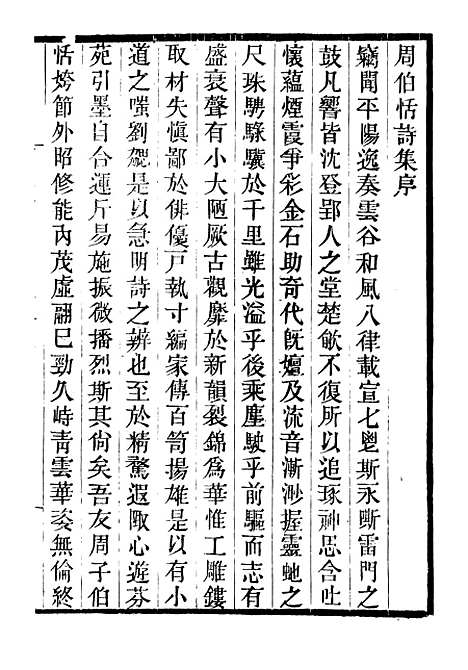 周伯恬詩集序
竊聞平陽逸奏雲谷和風八律載宣七鬯斯永斷雷門之
鼓凡響皆沈登郢人之堂楚歈不復所以追琢神思含吐
懷蘊煙霞爭彩金石助奇代既嬗及流音漸渺握靈虵之
尺珠騁騄驥於千里雖光溢乎後乘塵駛乎前驅而志有
盛衰聲有小大陋厥古觀靡於新韻裂錦為華惟工雕鏤
取材失愼鄙於俳優戸執寸編家傳百笥揚雄是以有小
道之嗤劉勰是以急明詩之辨也至於精騖遐陬心遊芬
苑引墨自合運斤易施振微播烈斯其尙矣吾友周子伯
恬姱節外昭修能內茂虛翮巳勁久峙靑雲華姿無倫終